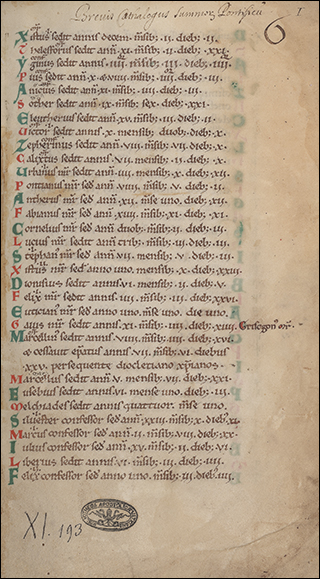 Brevis Catalogus Summor. Pontificu
1
6
Xistus sedit annis decem. msib; .ii. dieb; .ii.
Telesforus sedit anñ .xi. msib; .ii. dieb; .xxi.
sedit annis .iiii. msib; .iii. dieb; .iiii.
Pius sedit anñ
Anictus sedit anñ .xi. msib; .iiii. dieb; .iii.
Sother sedit anñ .ix. msib; sex. dieb; .xxi.
Eleutherus sedit anñ .xv. msib; .iii. dieb; .ii.
Victor sedit annis .x. mensib; duob; dieb; .x.
Zepherinus sedit anñ .viii. msib; .vii. dieb; .x.
Calixtus sedit annis .v. mensib; .ii. dieb; .x.
Urbanus mr sedit anñ .iiii. msib; .x. dieb; .xii.
Pontianus mr sed anñ .viiii. msib; .v. dieb; .ii.
Antherus mr sed anñ .xii. mse uno. dieb; .xii.
Fabianus mr sed anñ .xiiii. msib; .xi. dieb; .xi.
Cornelius mr sed anñ duob; msib; .ii. dieb; .iii.
Lucius mr sedit anñ trib; msib; .iii. dieb; .iii.
Stephan mr sed anñ .vii. mensib; .v. dieb; .ii.
Xistus mr sed anno uno. mensib; .x. dieb; .xxiii.
Dionisius sedit annis .vi. mensib; .ii. dieb; .v.
Felix mr sedit annis .ii. msib; .x. dieb; .xxvi.
Euticianus mr sed anno uno. mse uno. die uno.
Gaius mr sedit annis .xi. msib; .iiii. dieb; .xiiii.
Marcellinus sedit annis .viiii. msib; .iiii. dieb; .xv.
& cessavit epatus annis .vii. msib; .vi. diebus
.xxv. persequente diocletiano xpianos.
Marcellus sedit anñ .v. mensib; .vii. dieb; .xxi.
Eusebius sedit annis .vi. mense uno. dieb; .iii.
Melchiades sedit annis quattuor. mse uno.
Silvester confessor sed anñ .xxiii. msib; .x. dieb; .xi.
Marcus confessor sed anñ .ii. msib; .viii. dieb; .xx.
Iulius confessor sed anñ .xv. msib; .ii. dieb; .vi.
Liberius sedit annis .vi. msib; .iii. dieb; .iiii.
Felix confessor sed anno uno. msib; .iii. dieb; .iii.
XI. 193